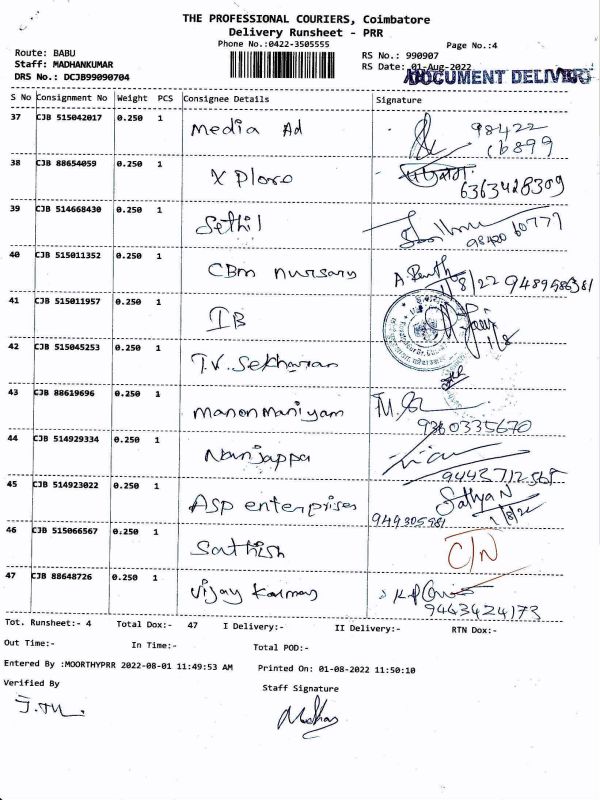 THE PROFESSIONAL COURIERS, Coimbatore
Delivery Runsheet - PRR
Phone No.:0422-3505555
Page No.:4
Route: BABU
RS No.: 990907
Staff: MADHANKUMAR
RS Date: 01-Aug-2022
DRS No.: DCJB99090704
DOCUMENT DELIVERY
S No Consignment No Weight PCS Consignee Details Signature
37 CJB 515042017 0.250 1 Media Ad 98422
16899
38 CJB 88654059 0.250 1 X Ploro
6363428309
39 CJB 514668430 0.250 1 Sethil
98420 60777
40 CJB 515011352 0.250 1 CBM nursary
1/8/22 9489586381
41 CJB 515011957 0.250 1 IB
1/8
42 CJB 515045253 0.250 1 T.V. Sekharan
43 CJB 88619696 0.250 1 Manonmaniyam
9360335670
44 CJB 514929334 0.250 1 Nanjappa
9443712565
45 CJB 514923022 0.250 1 Asp enterprises Sathya N
949305981 1/8/22
46 CJB 515066567 0.250 1 Sathish C/N
47 CJB 88648726 0.250 1 Vijay Kumar
9463424173
Tot. Runsheet:- 4 Total Dox:- 47 I Delivery:- II Delivery:- RTN Dox:-
Out Time:- In Time:- Total POD:-
Entered By :MOORTHYPRR 2022-08-01 11:49:53 AM Printed On: 01-08-2022 11:50:10
Verified By
Staff Signature
Madhas